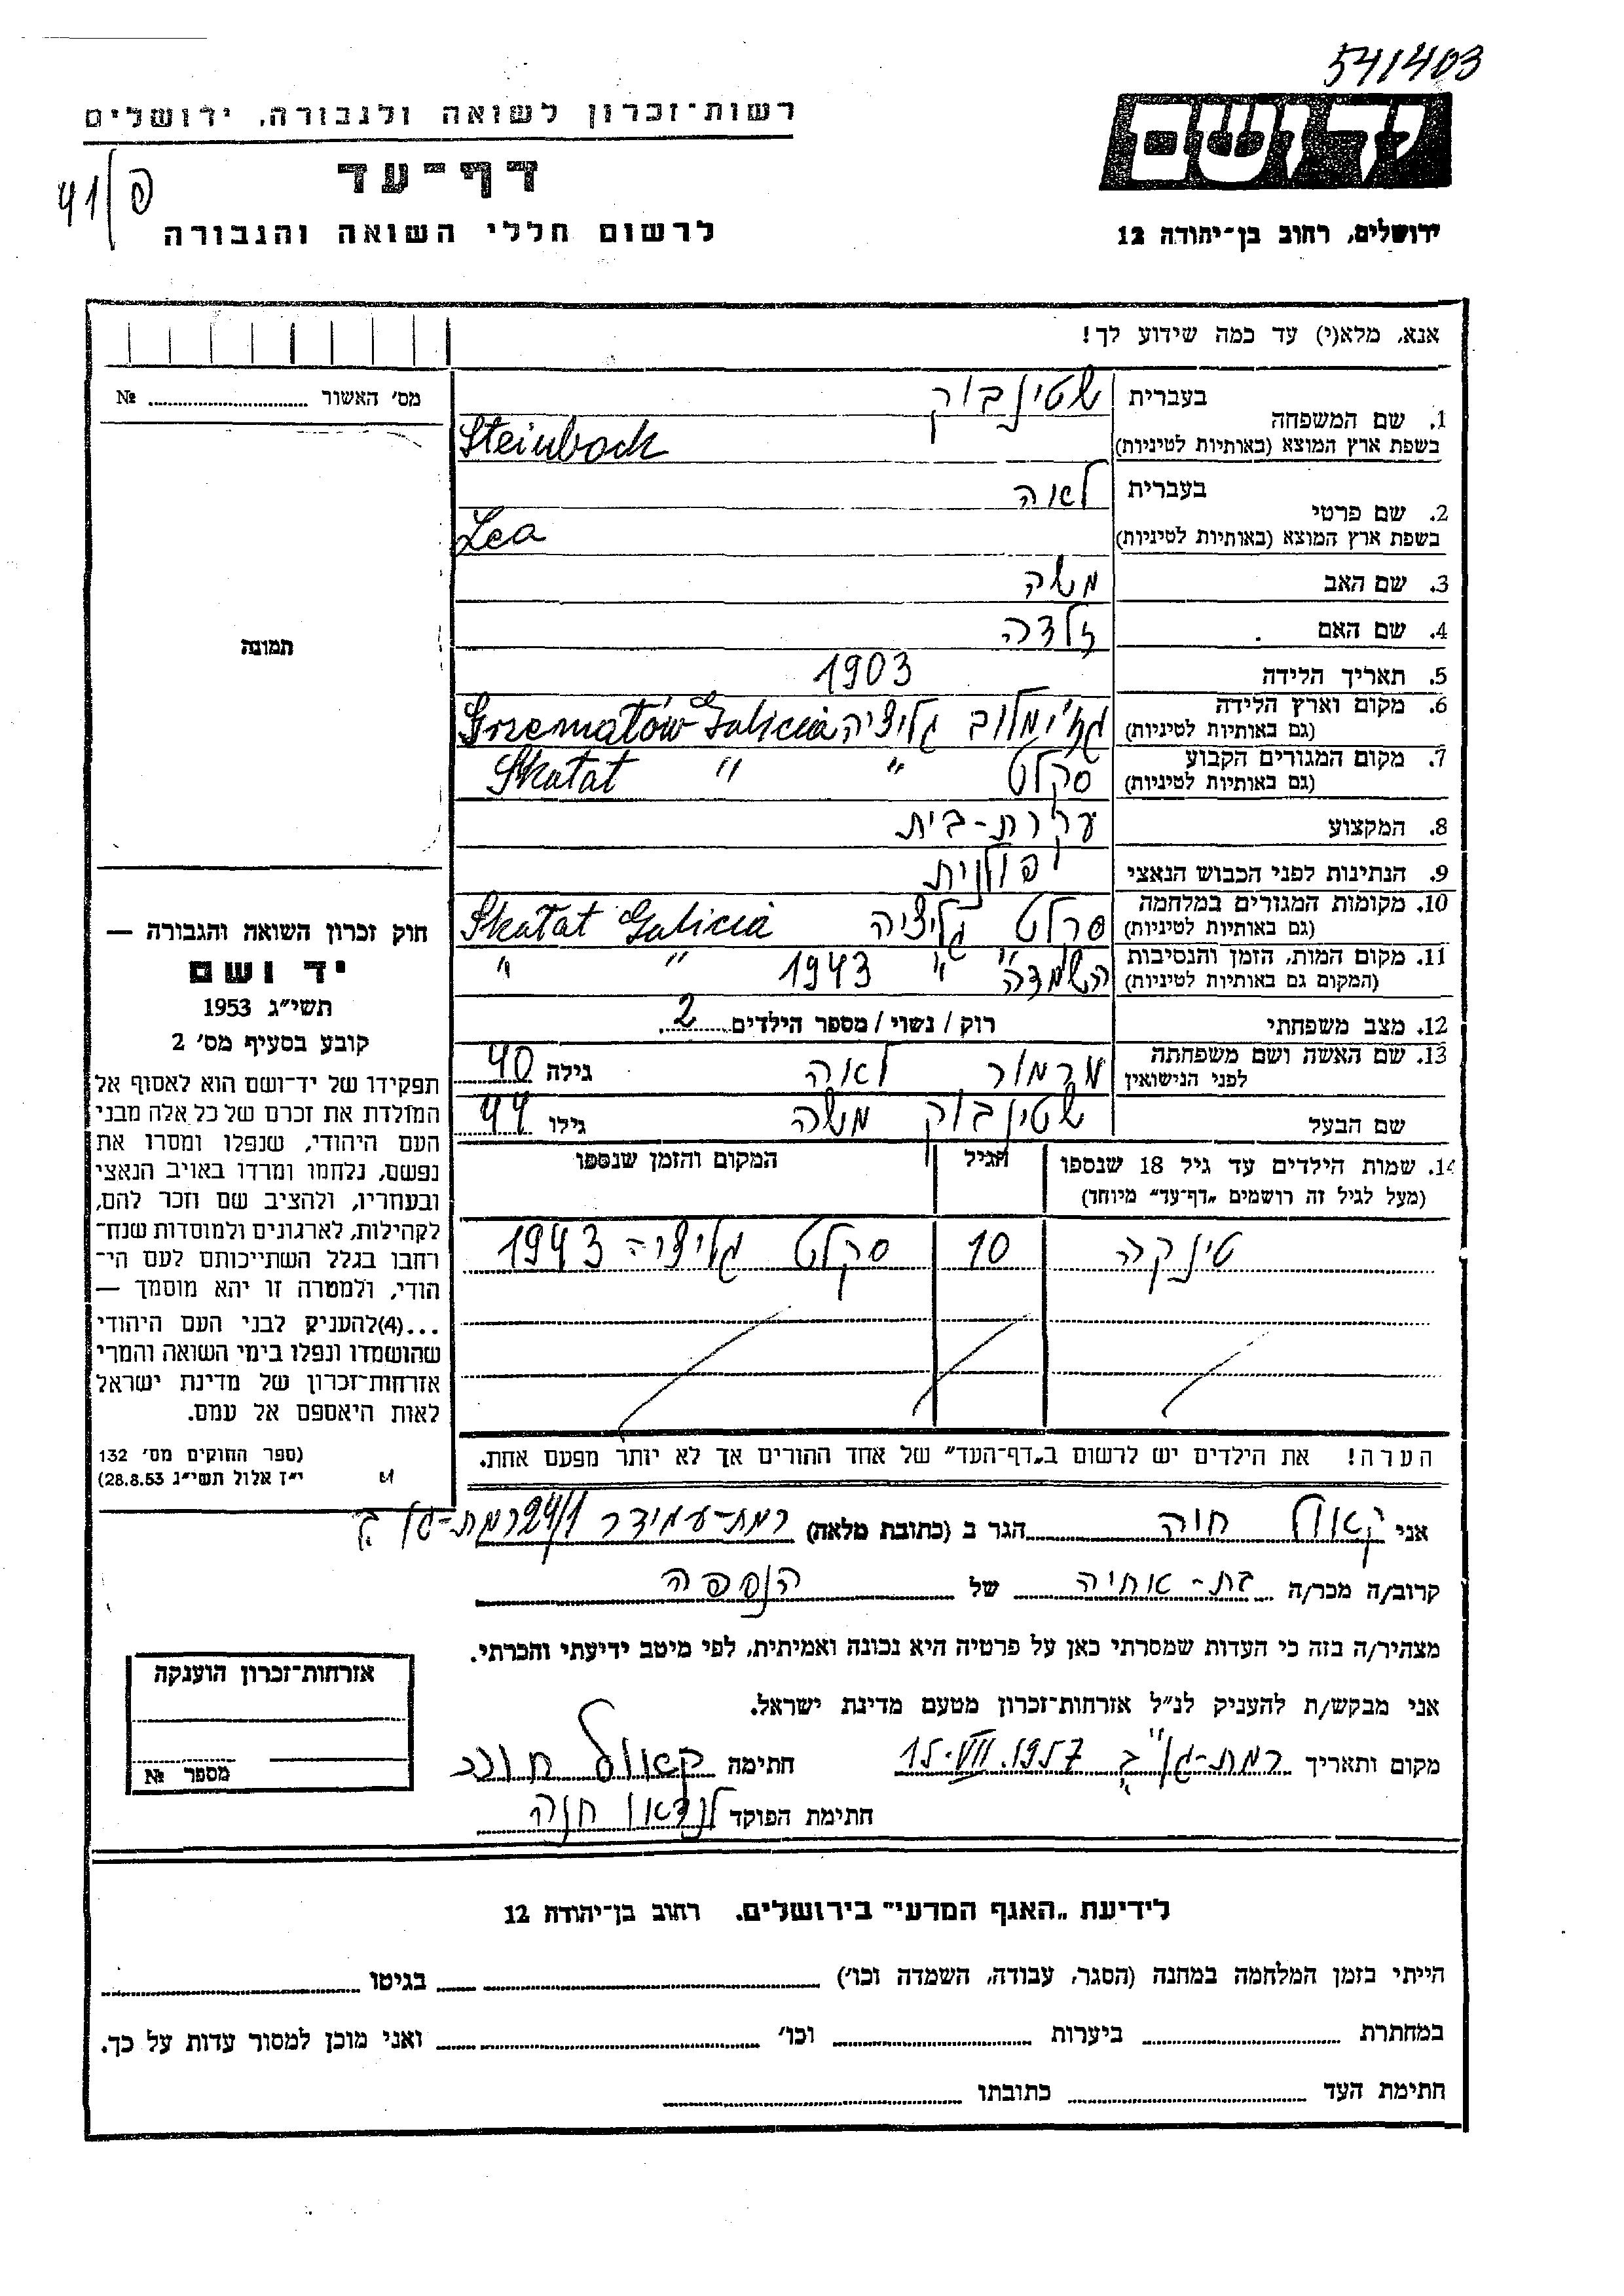 541403
רשות-זכרון לשואה ולגבורה, ירושלים
יד ושם
דף-עד
41/פ
לרשום חללי השואה והגבורה
ירושלים, רחוב בן-יהודה 12
אנא, מלא(י) עד כמה שידוע לך!
מס' האשור № ..........
1. שם המשפחה
בעברית שטינבוק
בשפת ארץ המוצא (באותיות לטיניות) Steinbock
2. שם פרטי
בעברית לאה
בשפת ארץ המוצא (באותיות לטיניות) Lea
3. שם האב משה
4. שם האם זלדה
תמונה
5. תאריך הלידה 1903
6. מקום וארץ הלידה גז'ימלוב גליציה Grzematów Galicia
(גם באותיות לטיניות)
7. מקום המגורים הקבוע סקלט " Skatat "
(גם באותיות לטיניות)
8. המקצוע עקרת-בית
9. הנתינות לפני הכבוש הנאצי פולנית
10. מקומות המגורים במלחמה סקלט גליציה Skatat Galicia
(גם באותיות לטיניות)
11. מקום המות, הזמן והנסיבות השמדה " " 1943 " "
(המקום גם באותיות לטיניות)
12. מצב משפחתי רוק / נשוי / מספר הילדים 2
13. שם האשה ושם משפחתה מרמור לאה גילה 40
לפני הנישואין
שם הבעל שטינבוק משה גילו 44
14. שמות הילדים עד גיל 18 שנספו הגיל המקום והזמן שנספו
(מעל לגיל זה רושמים „דף-עד" מיוחד)
טינקה 10 סקלט גליציה 1943
הערה! את הילדים יש לרשום ב„דף-העד" של אחד ההורים אך לא יותר מפעם אחת.
חוק זכרון השואה והגבורה —
יד ושם
תשי"ג 1953
קובע בסעיף מס' 2
תפקידו של יד-ושם הוא לאסוף אל
המולדת את זכרם של כל אלה מבני
העם היהודי, שנפלו ומסרו את
נפשם, נלחמו ומרדו באויב הנאצי
ובעוזריו, ולהציב שם וזכר להם,
לקהילות, לארגונים ולמוסדות שנח-
רחבו בגלל השתייכותם לעם הי-
הודי, ולמטרה זו יהא מוסמך —
...(4)להעניק לבני העם היהודי
שהושמדו ונפלו בימי השואה והמרי
אזרחות-זכרון של מדינת ישראל
לאות היאספם אל עמם.
(ספר החוקים מס' 132
י"ז אלול תשי"ג 28.8.53)
אני קאול חוה הגר ב (כתובת מלאה) רמת-עמידר 24/1 רמת-גן
קרוב/ה מכר/ה בת-אחיה של הנספה
מצהיר/ה בזה כי העדות שמסרתי כאן על פרטיה היא נכונה ואמיתית, לפי מיטב ידיעתי והכרתי.
אני מבקש/ת להעניק לנ"ל אזרחות-זכרון מטעם מדינת ישראל.
מקום ותאריך רמת-גן 15.VII.1957 חתימה קאול חוה
חתימת הפוקד לנדאו חנה
אזרחות-זכרון הוענקה
מספר №
לידיעת „האגף המדעי" בירושלים. רחוב בן-יהודה 12
הייתי בזמן המלחמה במחנה (הסגר, עבודה, השמדה וכו') .......... בגיטו ..........
במחתרת .......... ביערות .......... וכו' .......... ואני מוכן למסור עדות על כך.
חתימת העד .......... כתובתו ..........